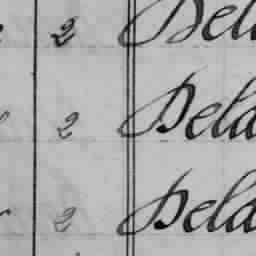 2 Dela
2 Dela
2 Dela